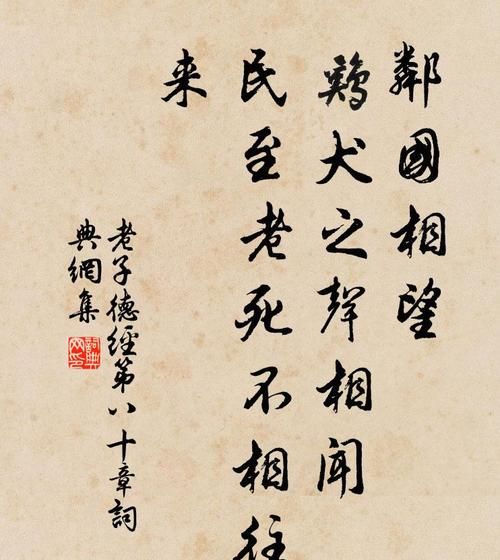 鄰國相望
鷄犬之聲相聞
民至老死不相往
来
老子德經第八十章詞
典網集